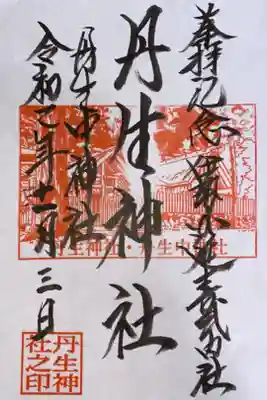 拝記念
式内社
丹生神社
丹生中神社
令和
年十一月三日
丹生神社・丹生中神社
丹生神
社之印